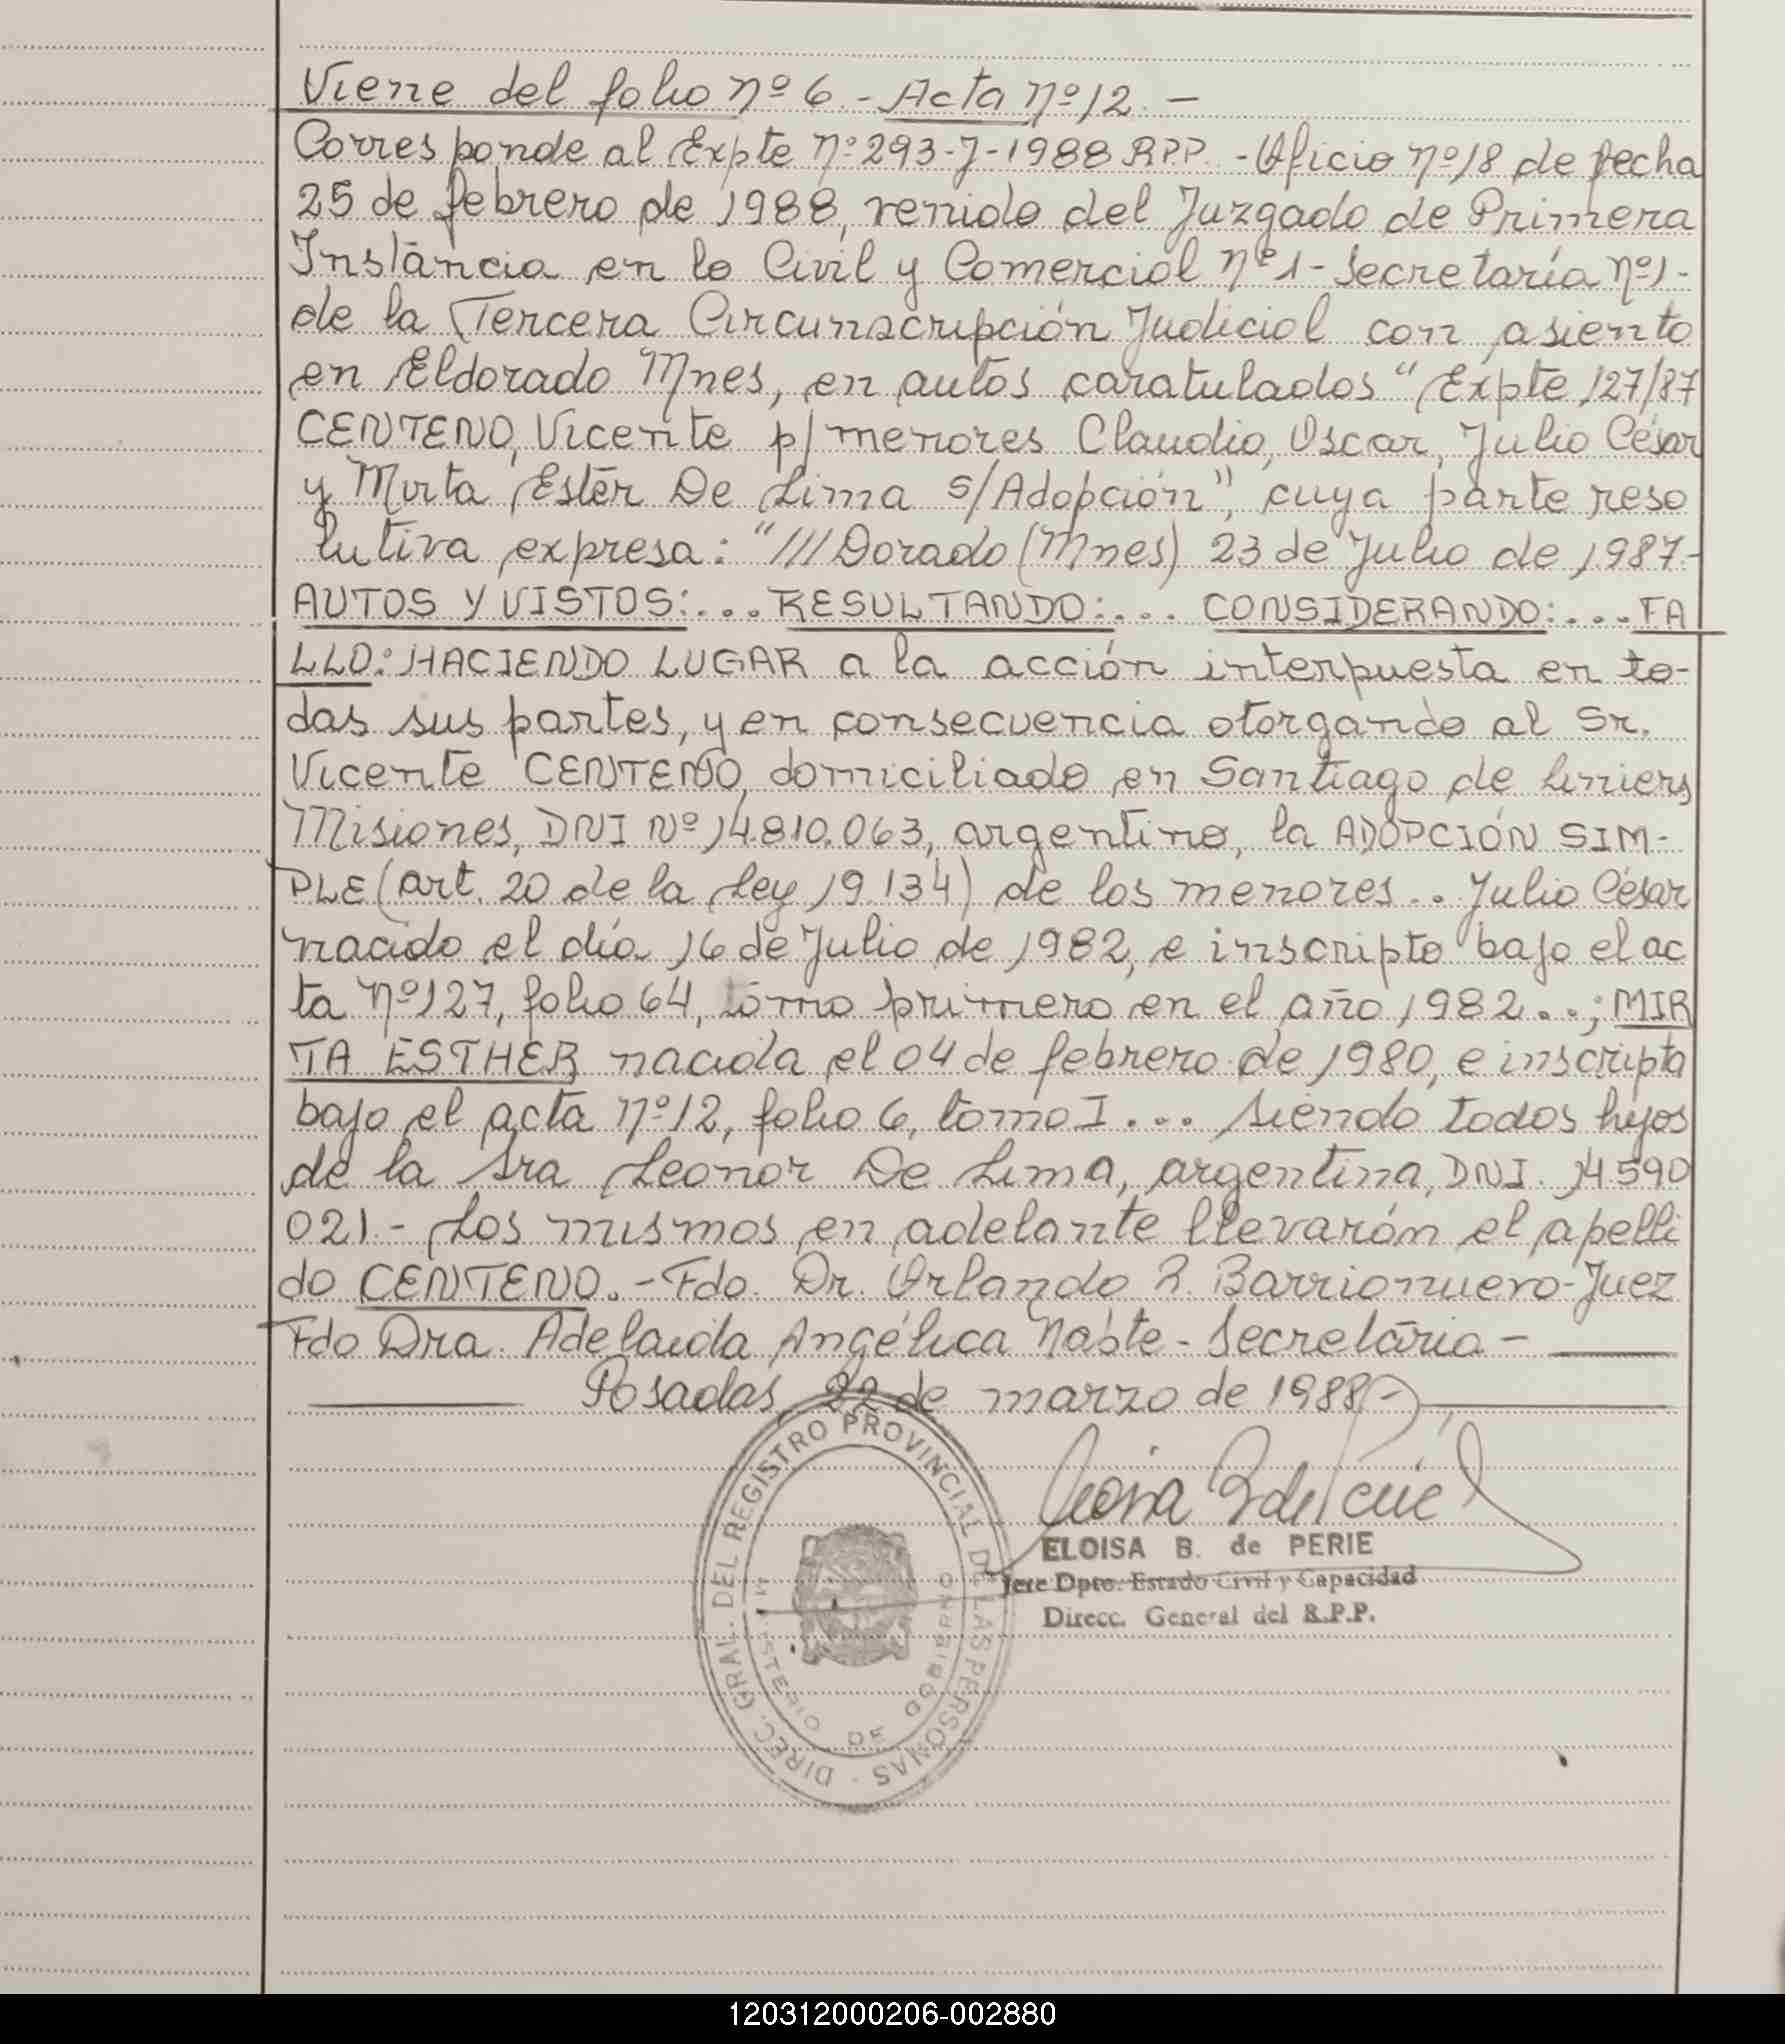 Viene del folio nº 6.- Acta nº 12.-
Corresponde al Expte nº 293-J-1988 RPP.-Oficio nº 18 de fecha
25 de febrero de 1988, venido del Juzgado de Primera
Instancia en lo Civil y Comercial nº 1-Secretaría nº 1-
de la Tercera Circunscripción Judicial con asiento
en Eldorado Mnes, en autos caratulados "Expte 127/87
CENTENO, Vicente p/menores Claudio, Oscar, Julio César
y Mirta Ester De Lima s/Adopción", cuya parte reso
lutiva expresa: "///Dorado (Mnes) 23 de Julio de 1987.-
AUTOS Y VISTOS:... RESULTANDO:... CONSIDERANDO:.... FA
LLO: HACIENDO LUGAR a la acción interpuesta en to-
das sus partes, y en consecuencia otorgando al Sr.
Vicente CENTENO, domiciliado en Santiago de Liniers
Misiones, DNI Nº 14.810.063, argentino, la ADOPCIÓN SIM-
PLE (art. 20 de la Ley 19.134) de los menores.. Julio César
nacido el día 16 de Julio de 1982, e inscripto bajo el ac
ta nº 127, folio 64, tomo primero en el año 1982..; MIR
TA ESTHER nacida el 04 de febrero de 1980, e inscripta
bajo el acta nº 12, folio 6, tomo I... siendo todos hijos
de la Sra Leonor De Lima, argentina, DNI. 14.590
021.- Los mismos en adelante llevarán el apelli
do CENTENO.- Fdo. Dr. Orlando R. Barrionuevo-Juez
Fdo Dra. Adelaida Angélica Nabte-Secretaria-
Posadas, 22 de marzo de 1988.-
DIREC. GRAL. DEL REGISTRO PROVINCIAL DE LAS PERSONAS
MINISTERIO DE GOBIERNO
ELOISA B. de PERIE
Jefe Dpto. Estado Civil y Capacidad
Direcc. General del R.P.P.
120312000206-002880